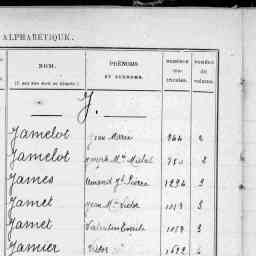 ALPHABÉTIQUE.
NOM. PRÉNOMS ET SURNOMS. NUMÉROS MATRICULES. NUMÉRO DU VOLUME.
J.
Jamelot Jean Pierre 944 2
Jamelot Joseph Mie Michel 750 2
James Armand Jh Pierre 1294 3
Jamet Jean Mie Victor 1013 3
Jamet Valentin 1053 3
Jamier Victor 1682 4